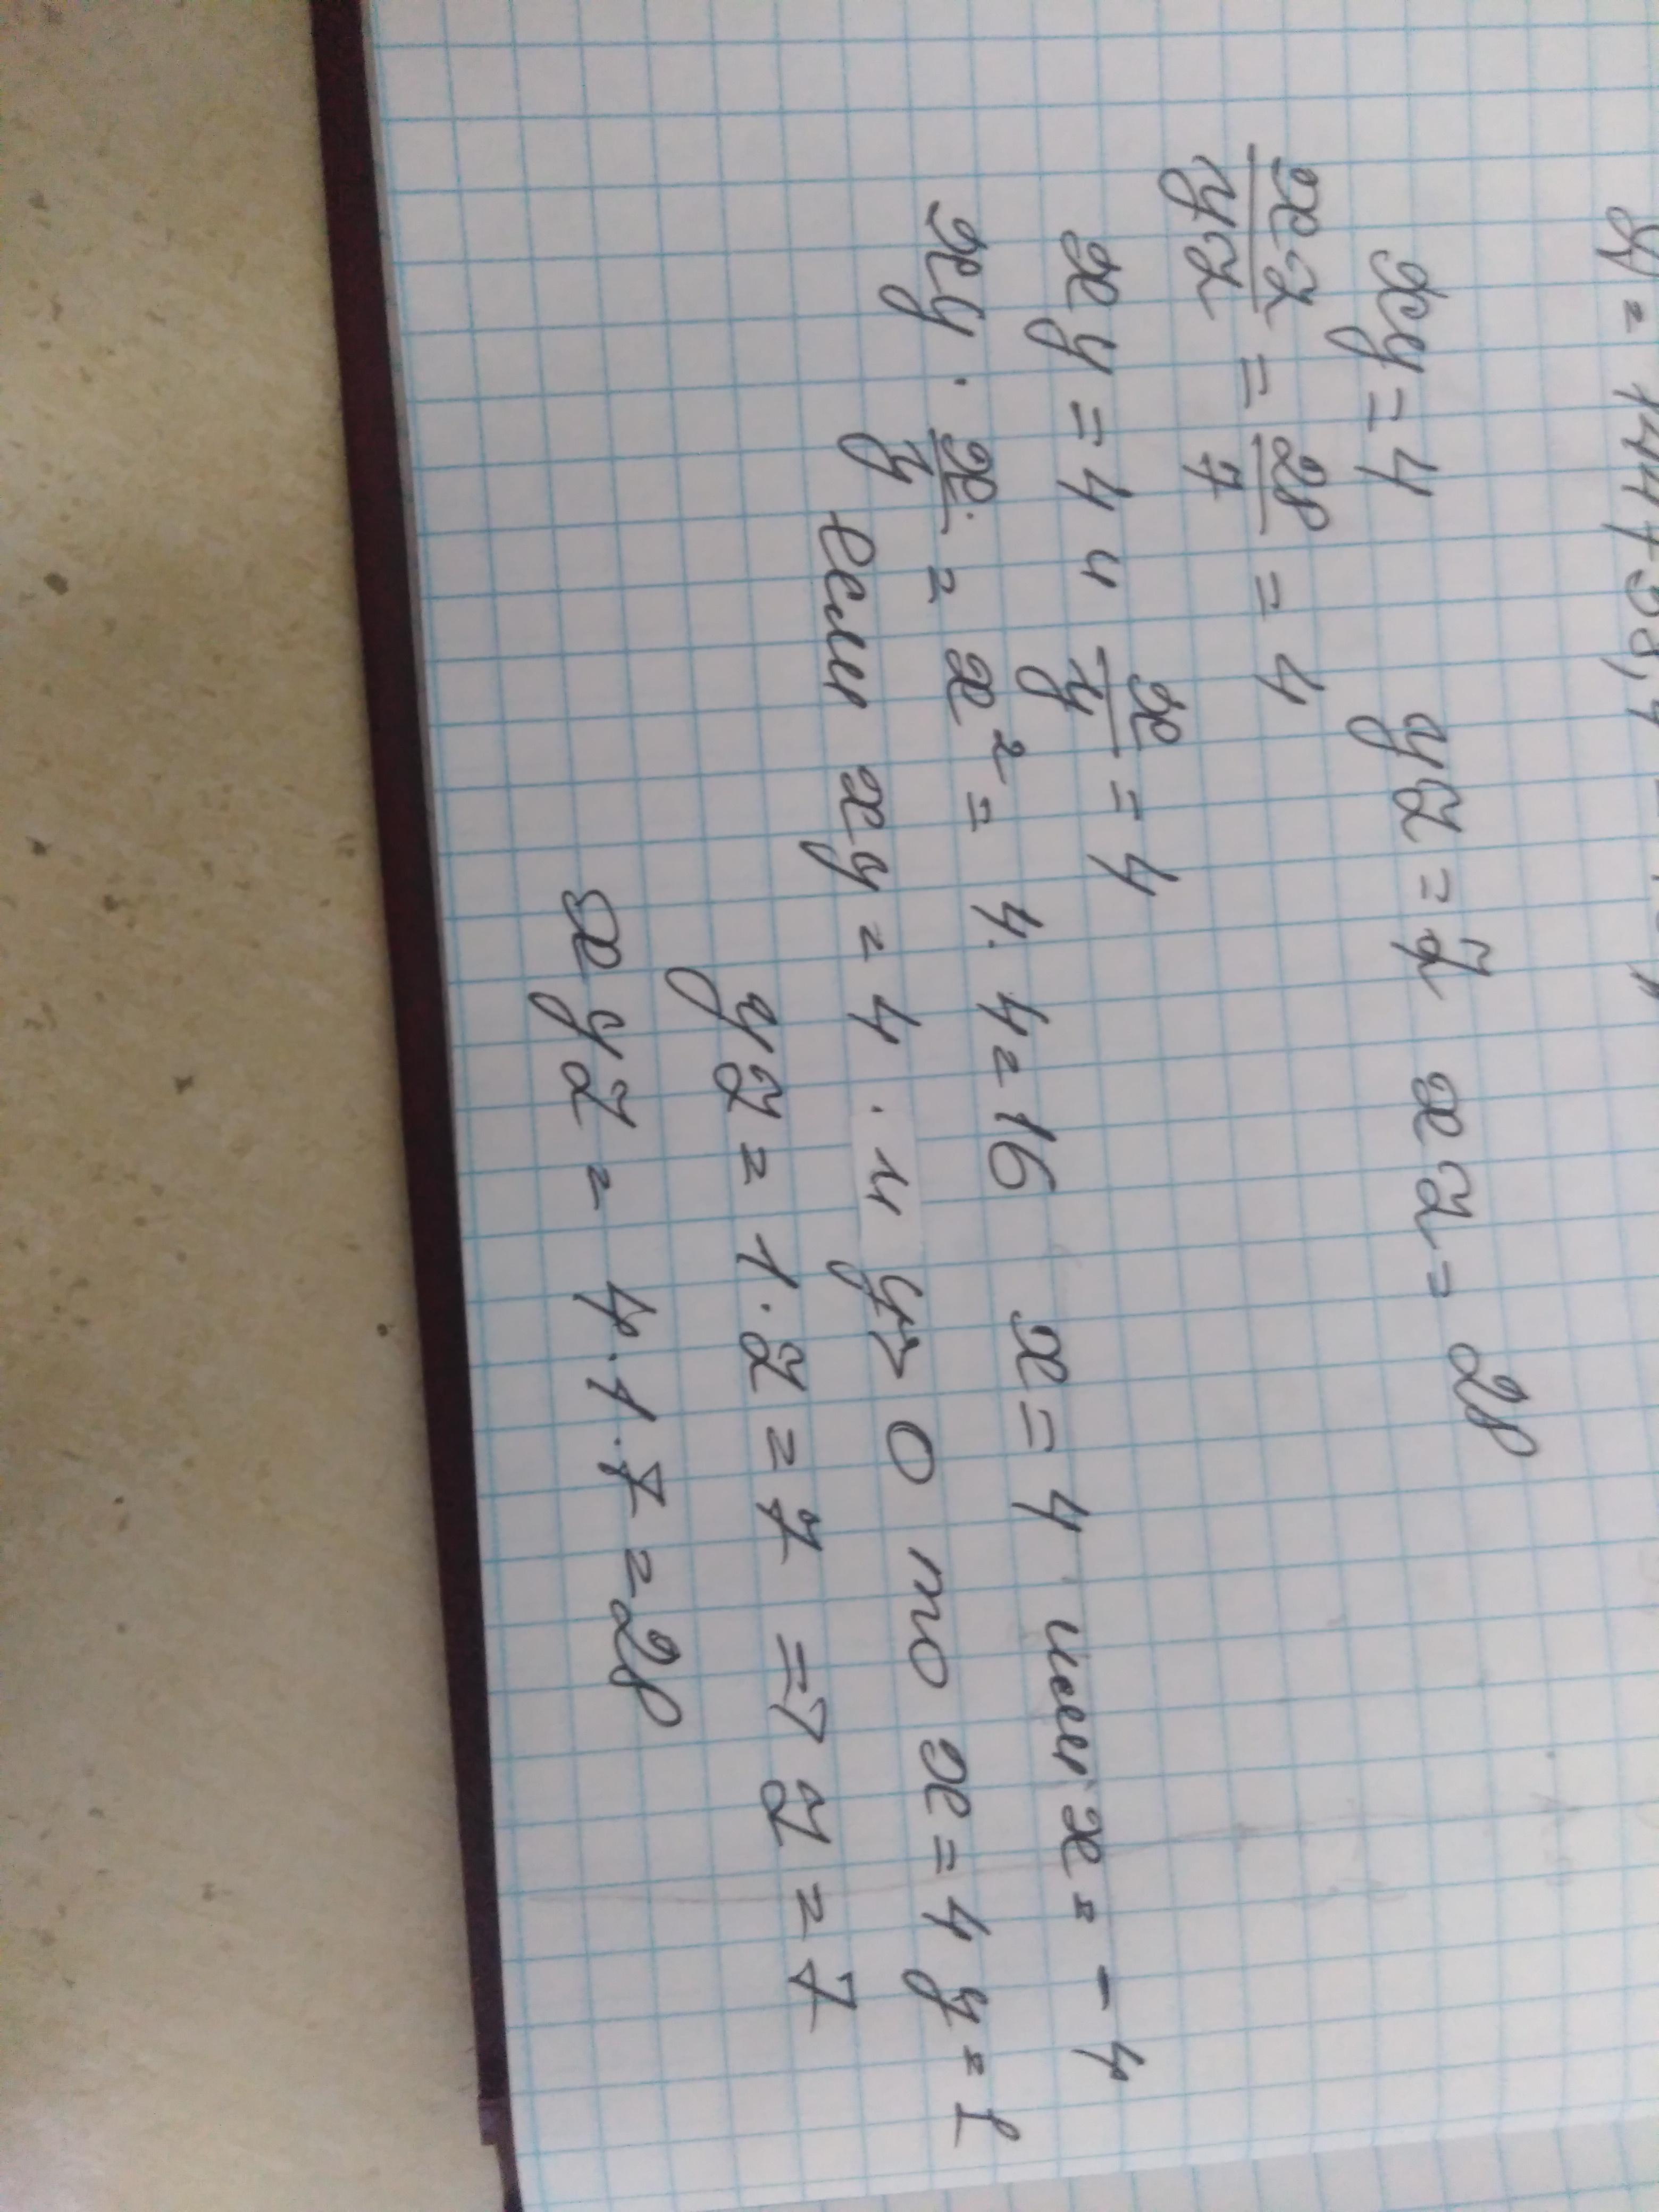 xy = 4 yz = 7 xz = 28
xz/yz = 28/7 = 4
xy = 4 и x/y = 4
xy · x/y = x² = 4 · 4 = 16 x = 4 или x = - 4
если xy = 4 · и y > 0 то x = 4 y = 1
yz = 1 · z = 7 => z = 7
xyz = 4 · 1 · 7 = 28